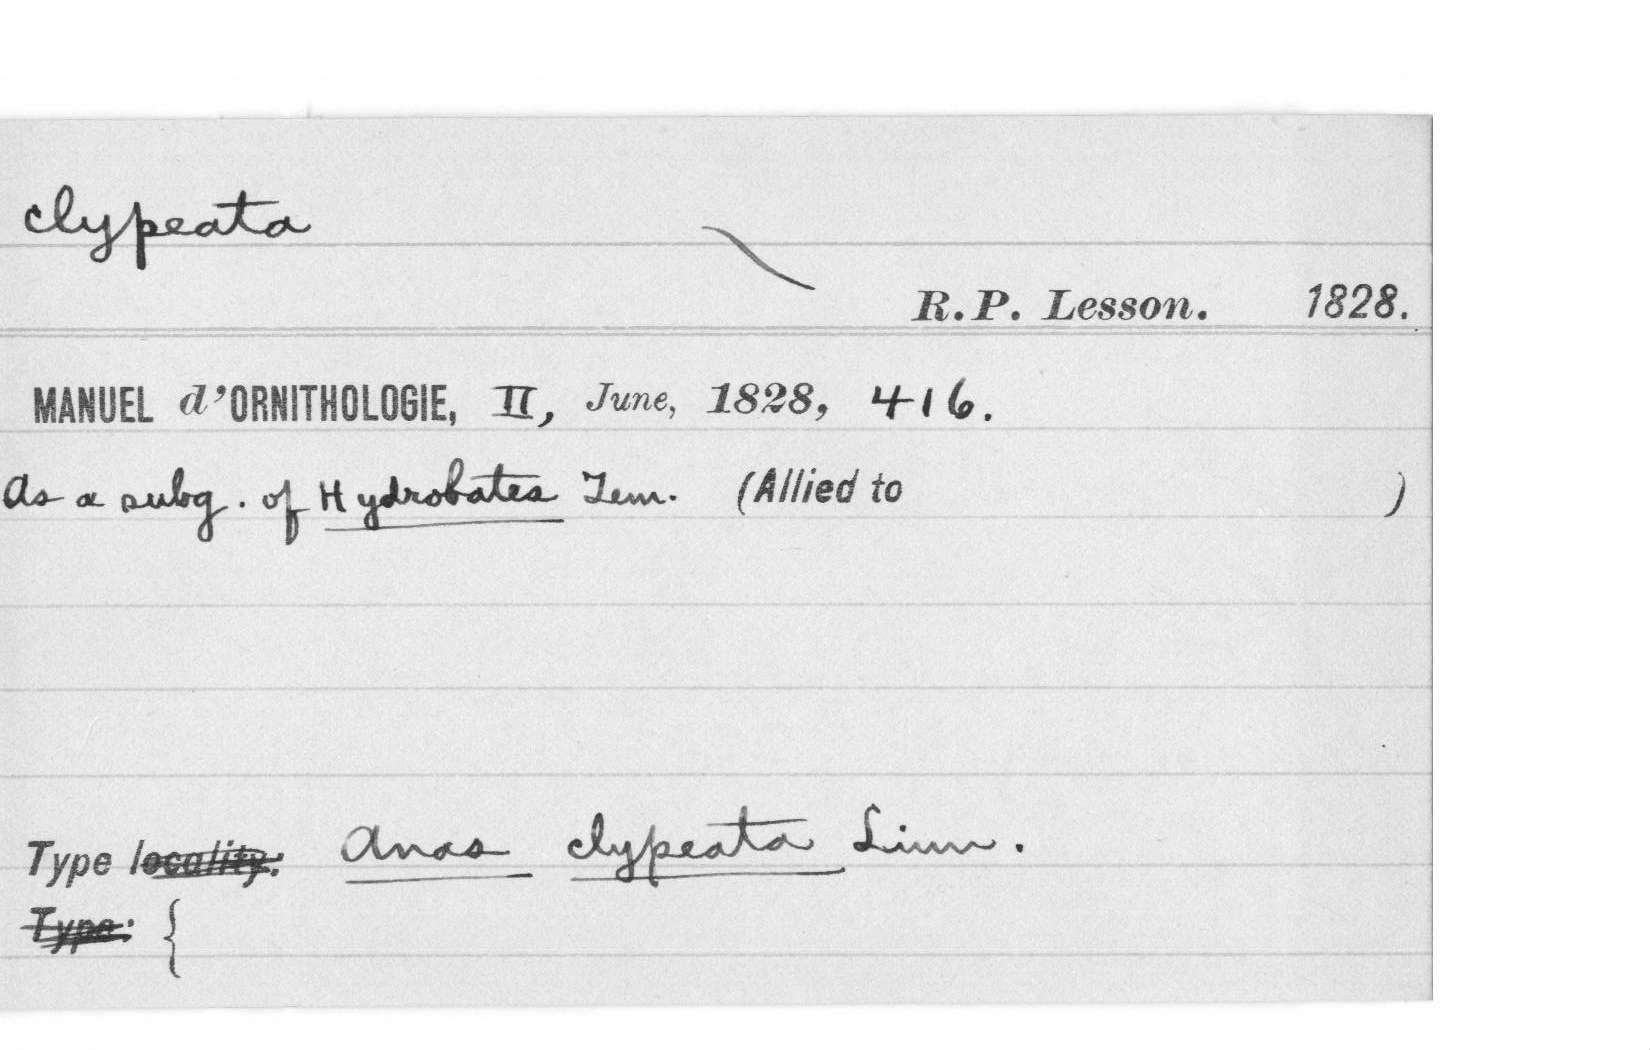 clypeata
R.P. Lesson. 1828.
MANUEL d'ORNITHOLOGIE, II, June, 1828, 416.
As a subg. of Hydrobates Tem. (Allied to )
Type locality: Anas clypeata Linn.
Type: {